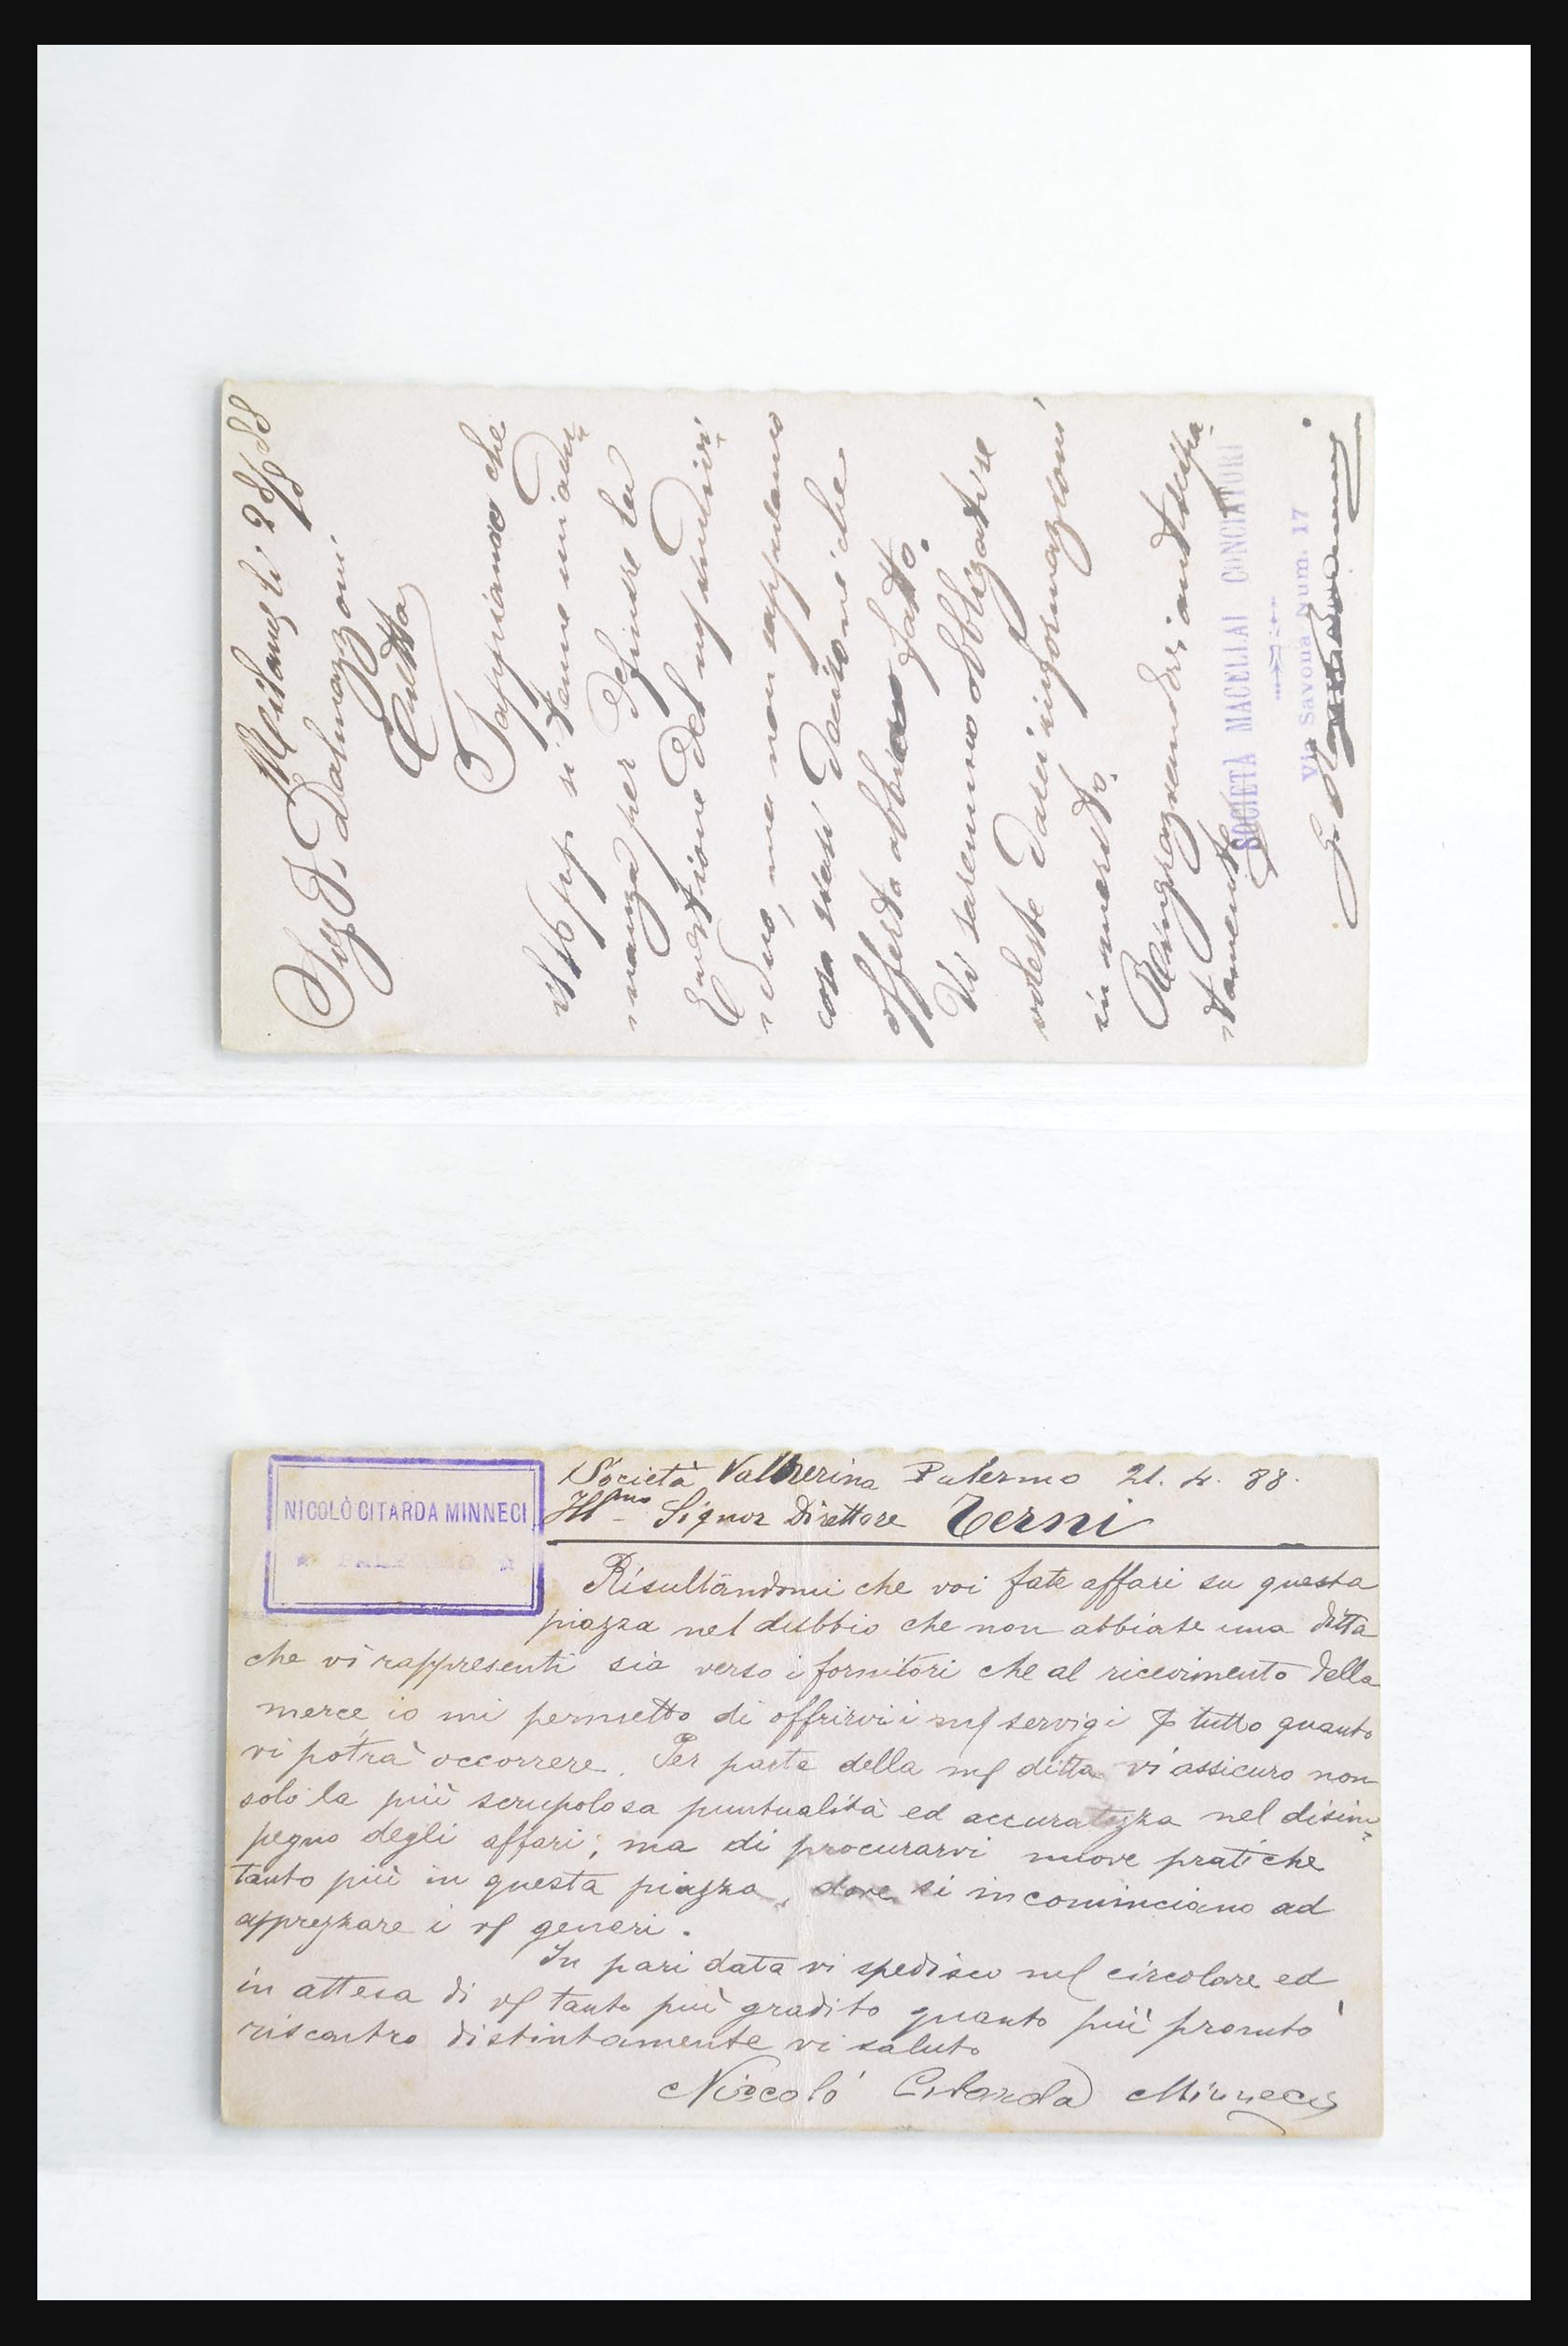 Milano, li 28/8 88
Sig. F. Dalmazzoni
Città
Sappiamo che
il 16 pp. si tenne un'adu-
-nanza per definire la
Questione del
-duo, ma non sappiamo
cosa siasi deciso nè che
offerta abbiano fatto.
Vi saremmo obbligati se
voleste darci informazioni
in merito.
Ringraziandovi anticipa-
-tamente
SOCIETÀ MACELLAI CONCIATORI
Via Savona Num. 17
NICOLÒ CITARDA MINNECI
PALERMO
Società Valnerina Palermo 21. 4. 88.
Ill.mo Signor Direttore Terni
Risultandomi che voi fate affari su questa
piazza nel dubbio che non abbiate una ditta
che vi rappresenti sia verso i fornitori che al ricevimento della
merce io mi permetto di offrirvi i m/ servigi p tutto quanto
vi potrà occorrere. Per parte della m/ ditta vi assicuro non
solo la più scrupolosa puntualità ed accuratezza nel disim-
pegno degli affari, ma di procurarvi nuove pratiche
tanto più in questa piazza, dove si incominciano ad
apprezzare i v/ generi.
In pari data vi spedisco m/ circolare ed
in attesa di v/ tanto più gradito quanto più pronto
riscontro distintamente vi saluto
Niccolò Citarda Minneci